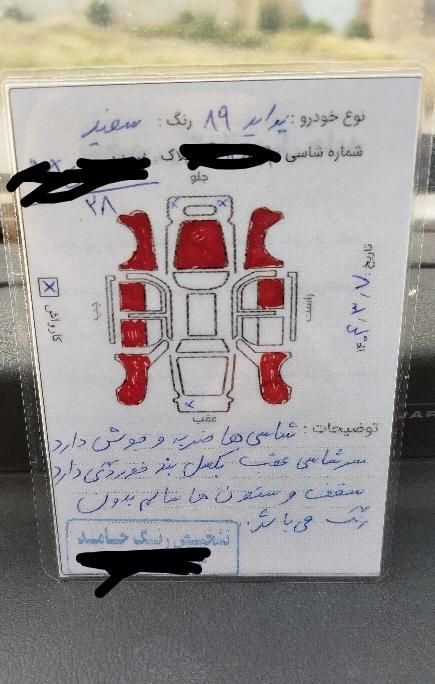 نوع خودرو : پراید ۸۹ رنگ : سفید
شماره شاسی پلاک :
۲۸
جلو
تاریخ : ۱۴۰۳/۳/۷
کارواش
عقب
توضیحات : شاسی ها ضربه و جوش دارد
سرشاسی عقب بکسل بند خوردگی دارد
سقف و ستون ها سالم بدون
رنگ می باشد.
تشخیص رنگ حامد